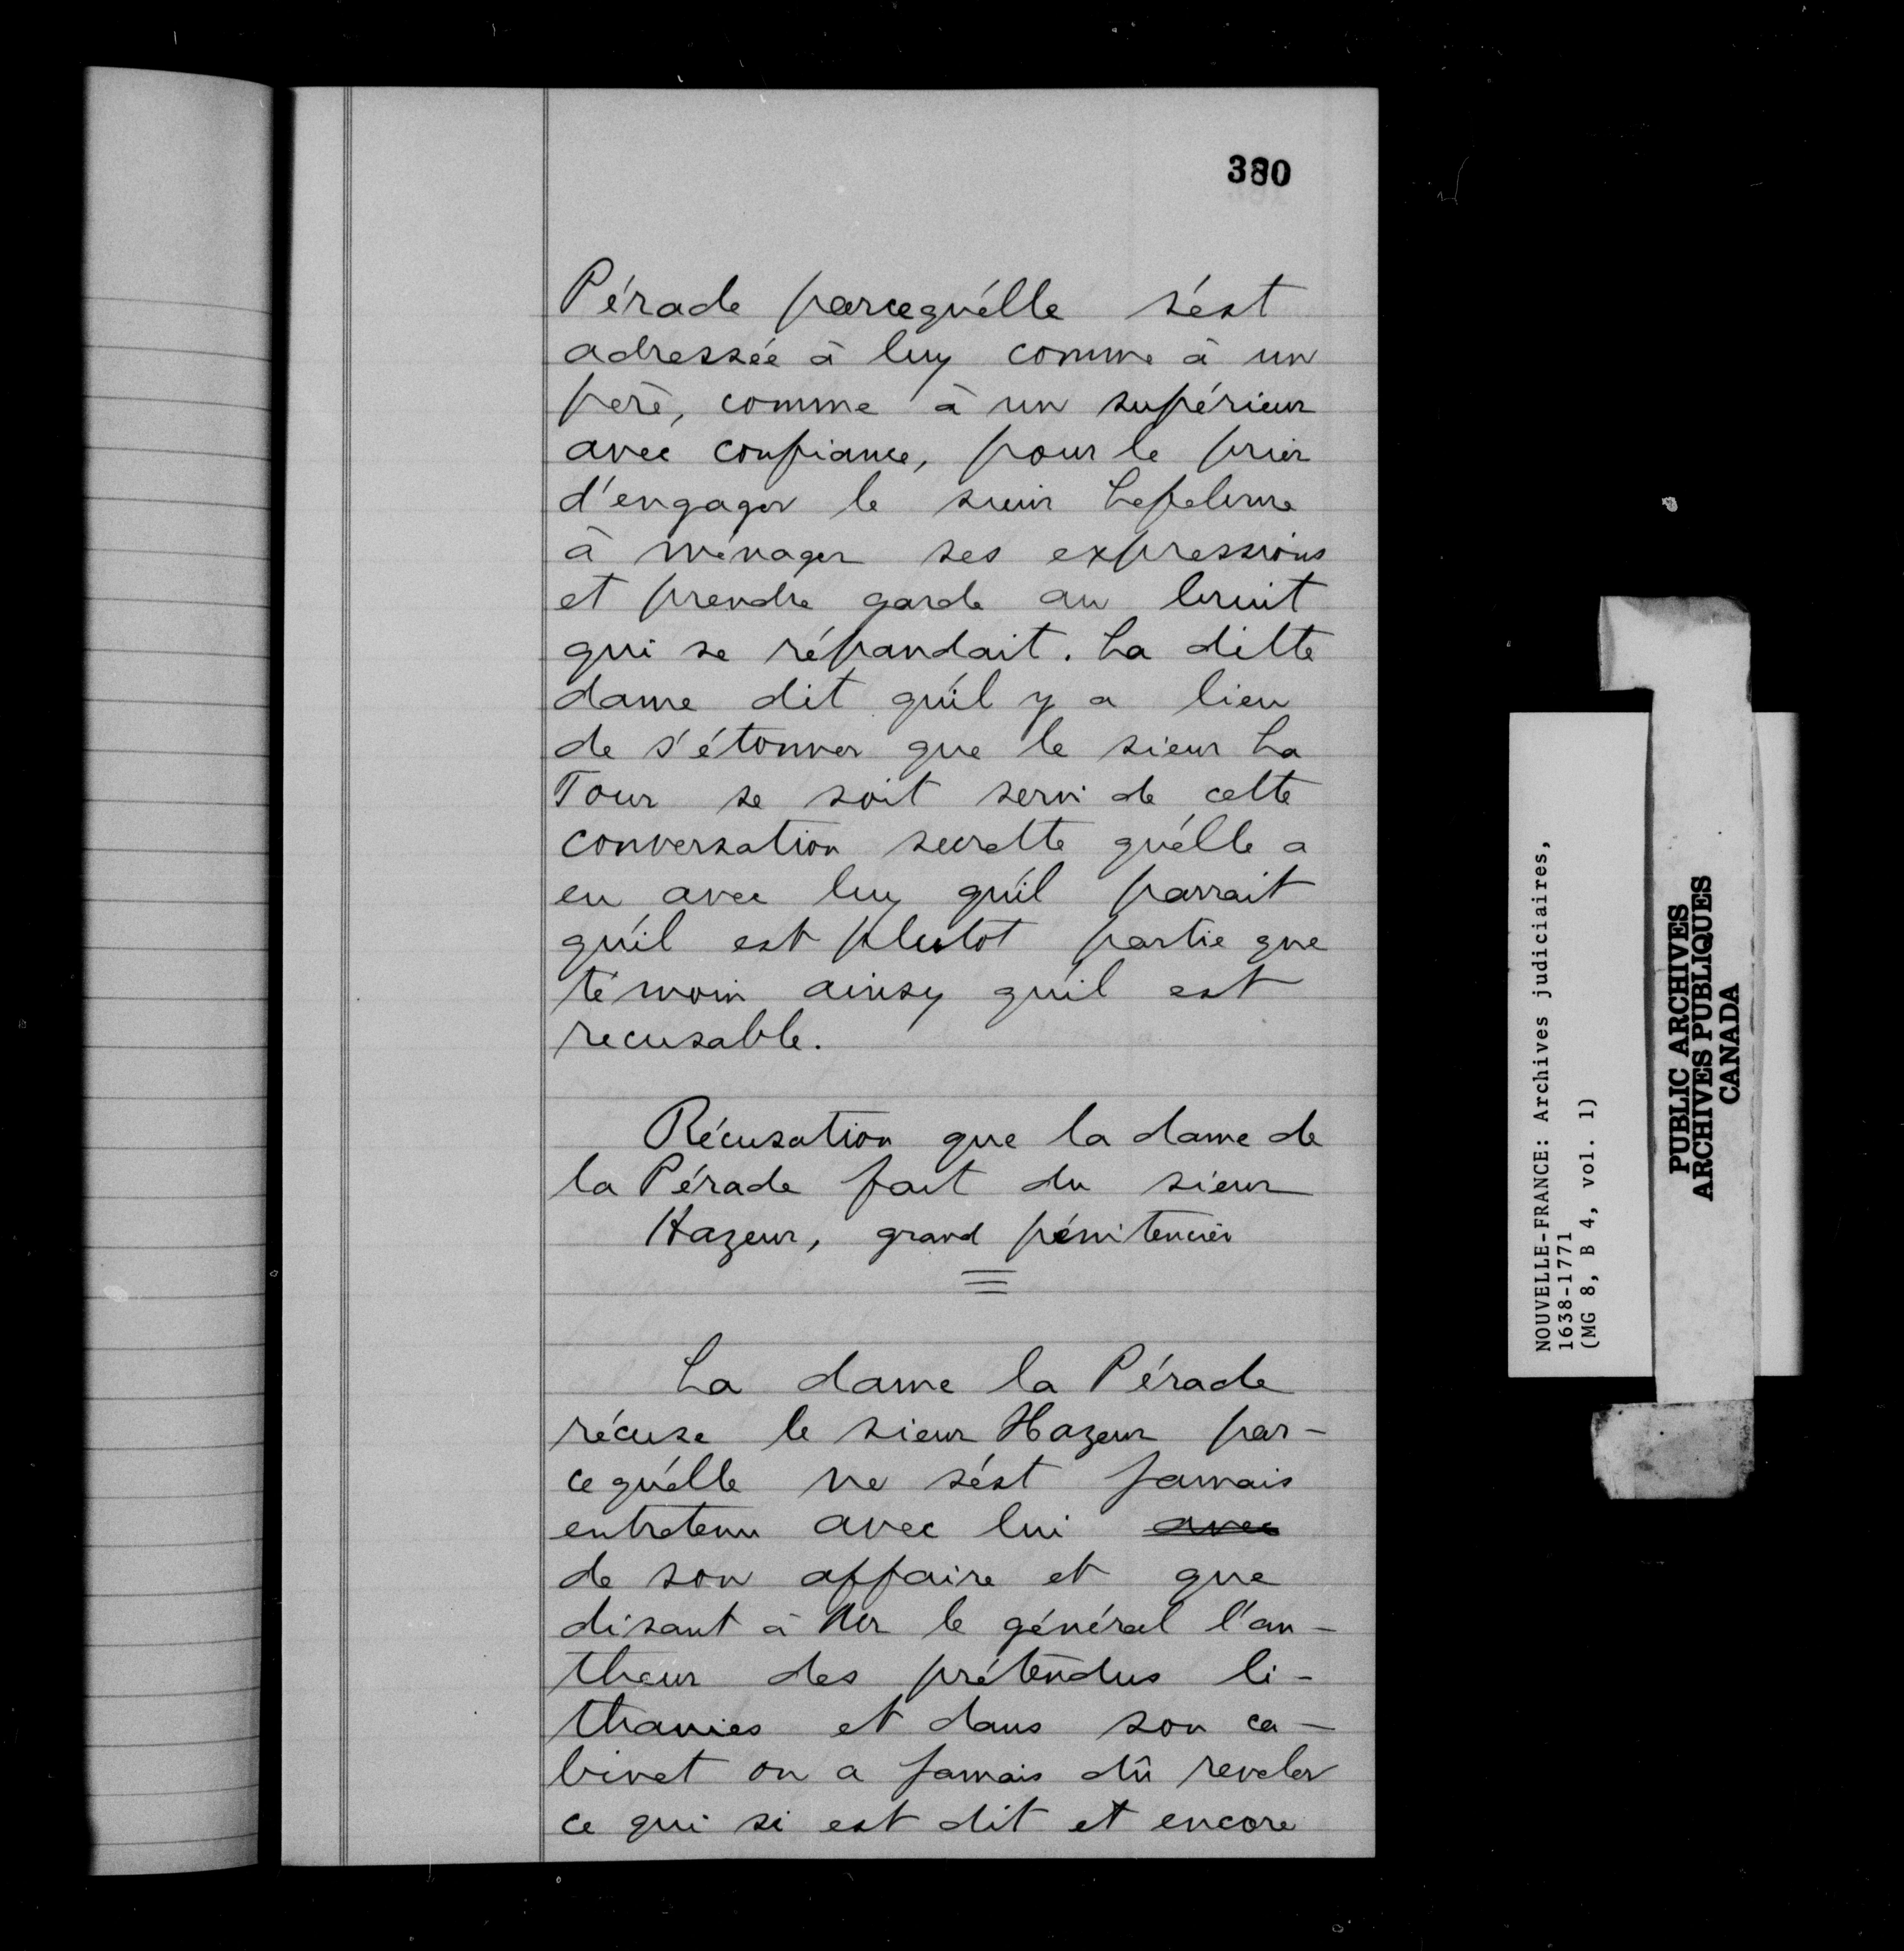 380
Pérade parcequ'élle s'ést
adressée à luy comme à un
perè, comme à un supérieur
avec confiance, pour le prier
d'engager le sieur Lefebvre
à ménager ses expressions
et prendre garde au bruit
qui se répandait. La ditte
dame dit qu'il y a lieu
de s'étonner que le sieur La
Tour se soit servi de cette
conversation secrette qu'élle a
eu avec luy qu'il parrait
qu'il est plutot partie que
témoin ainsy qu'il est
recusable.
Récusation que la dame de
la Pérade fait du sieur
Hazeur, grand pénitencier
La dame la Pérade
récuse le sieur Hazeur par-
ce qu'élle ne s'ést jamais
entretenu avec lui avec
de son affaire et que
disant à Mr le général l'au-
theur des prétendus li-
thanies et dans son ca-
binet on a jamais dû reveler
ce qui si est dit et encore
NOUVELLE-FRANCE: Archives judiciaires,
1638-1771
(MG 8, B 4, vol. 1)
PUBLIC ARCHIVES
ARCHIVES PUBLIQUES
CANADA